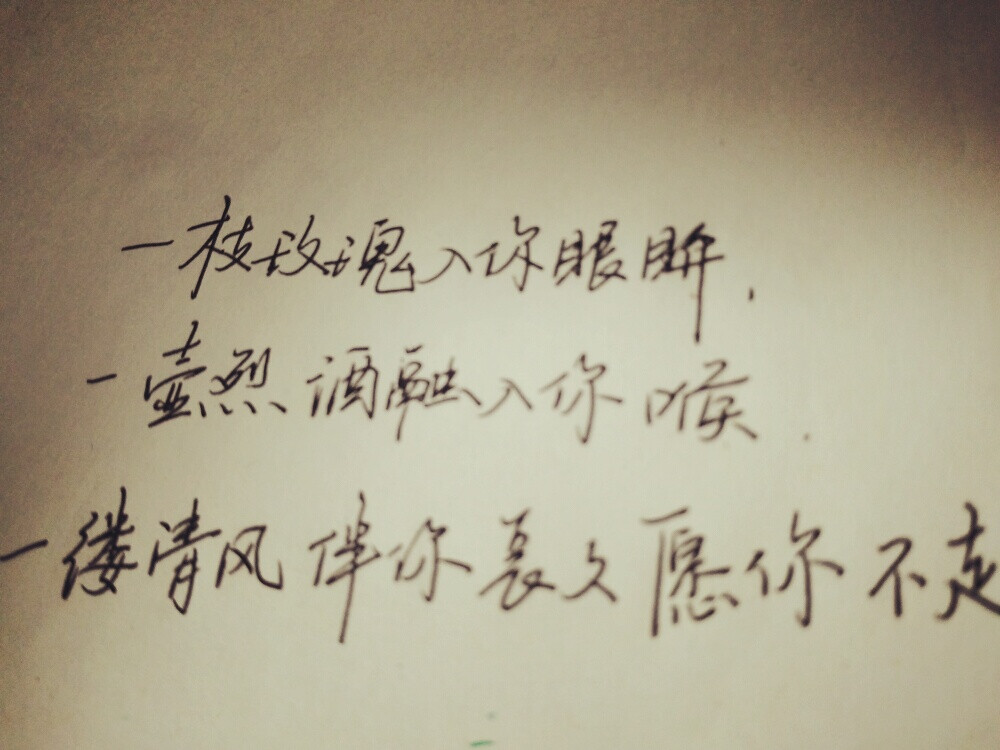 一枝玫瑰入你眼眸,
一壶烈酒融入你喉.
一缕清风伴你长久愿你不走